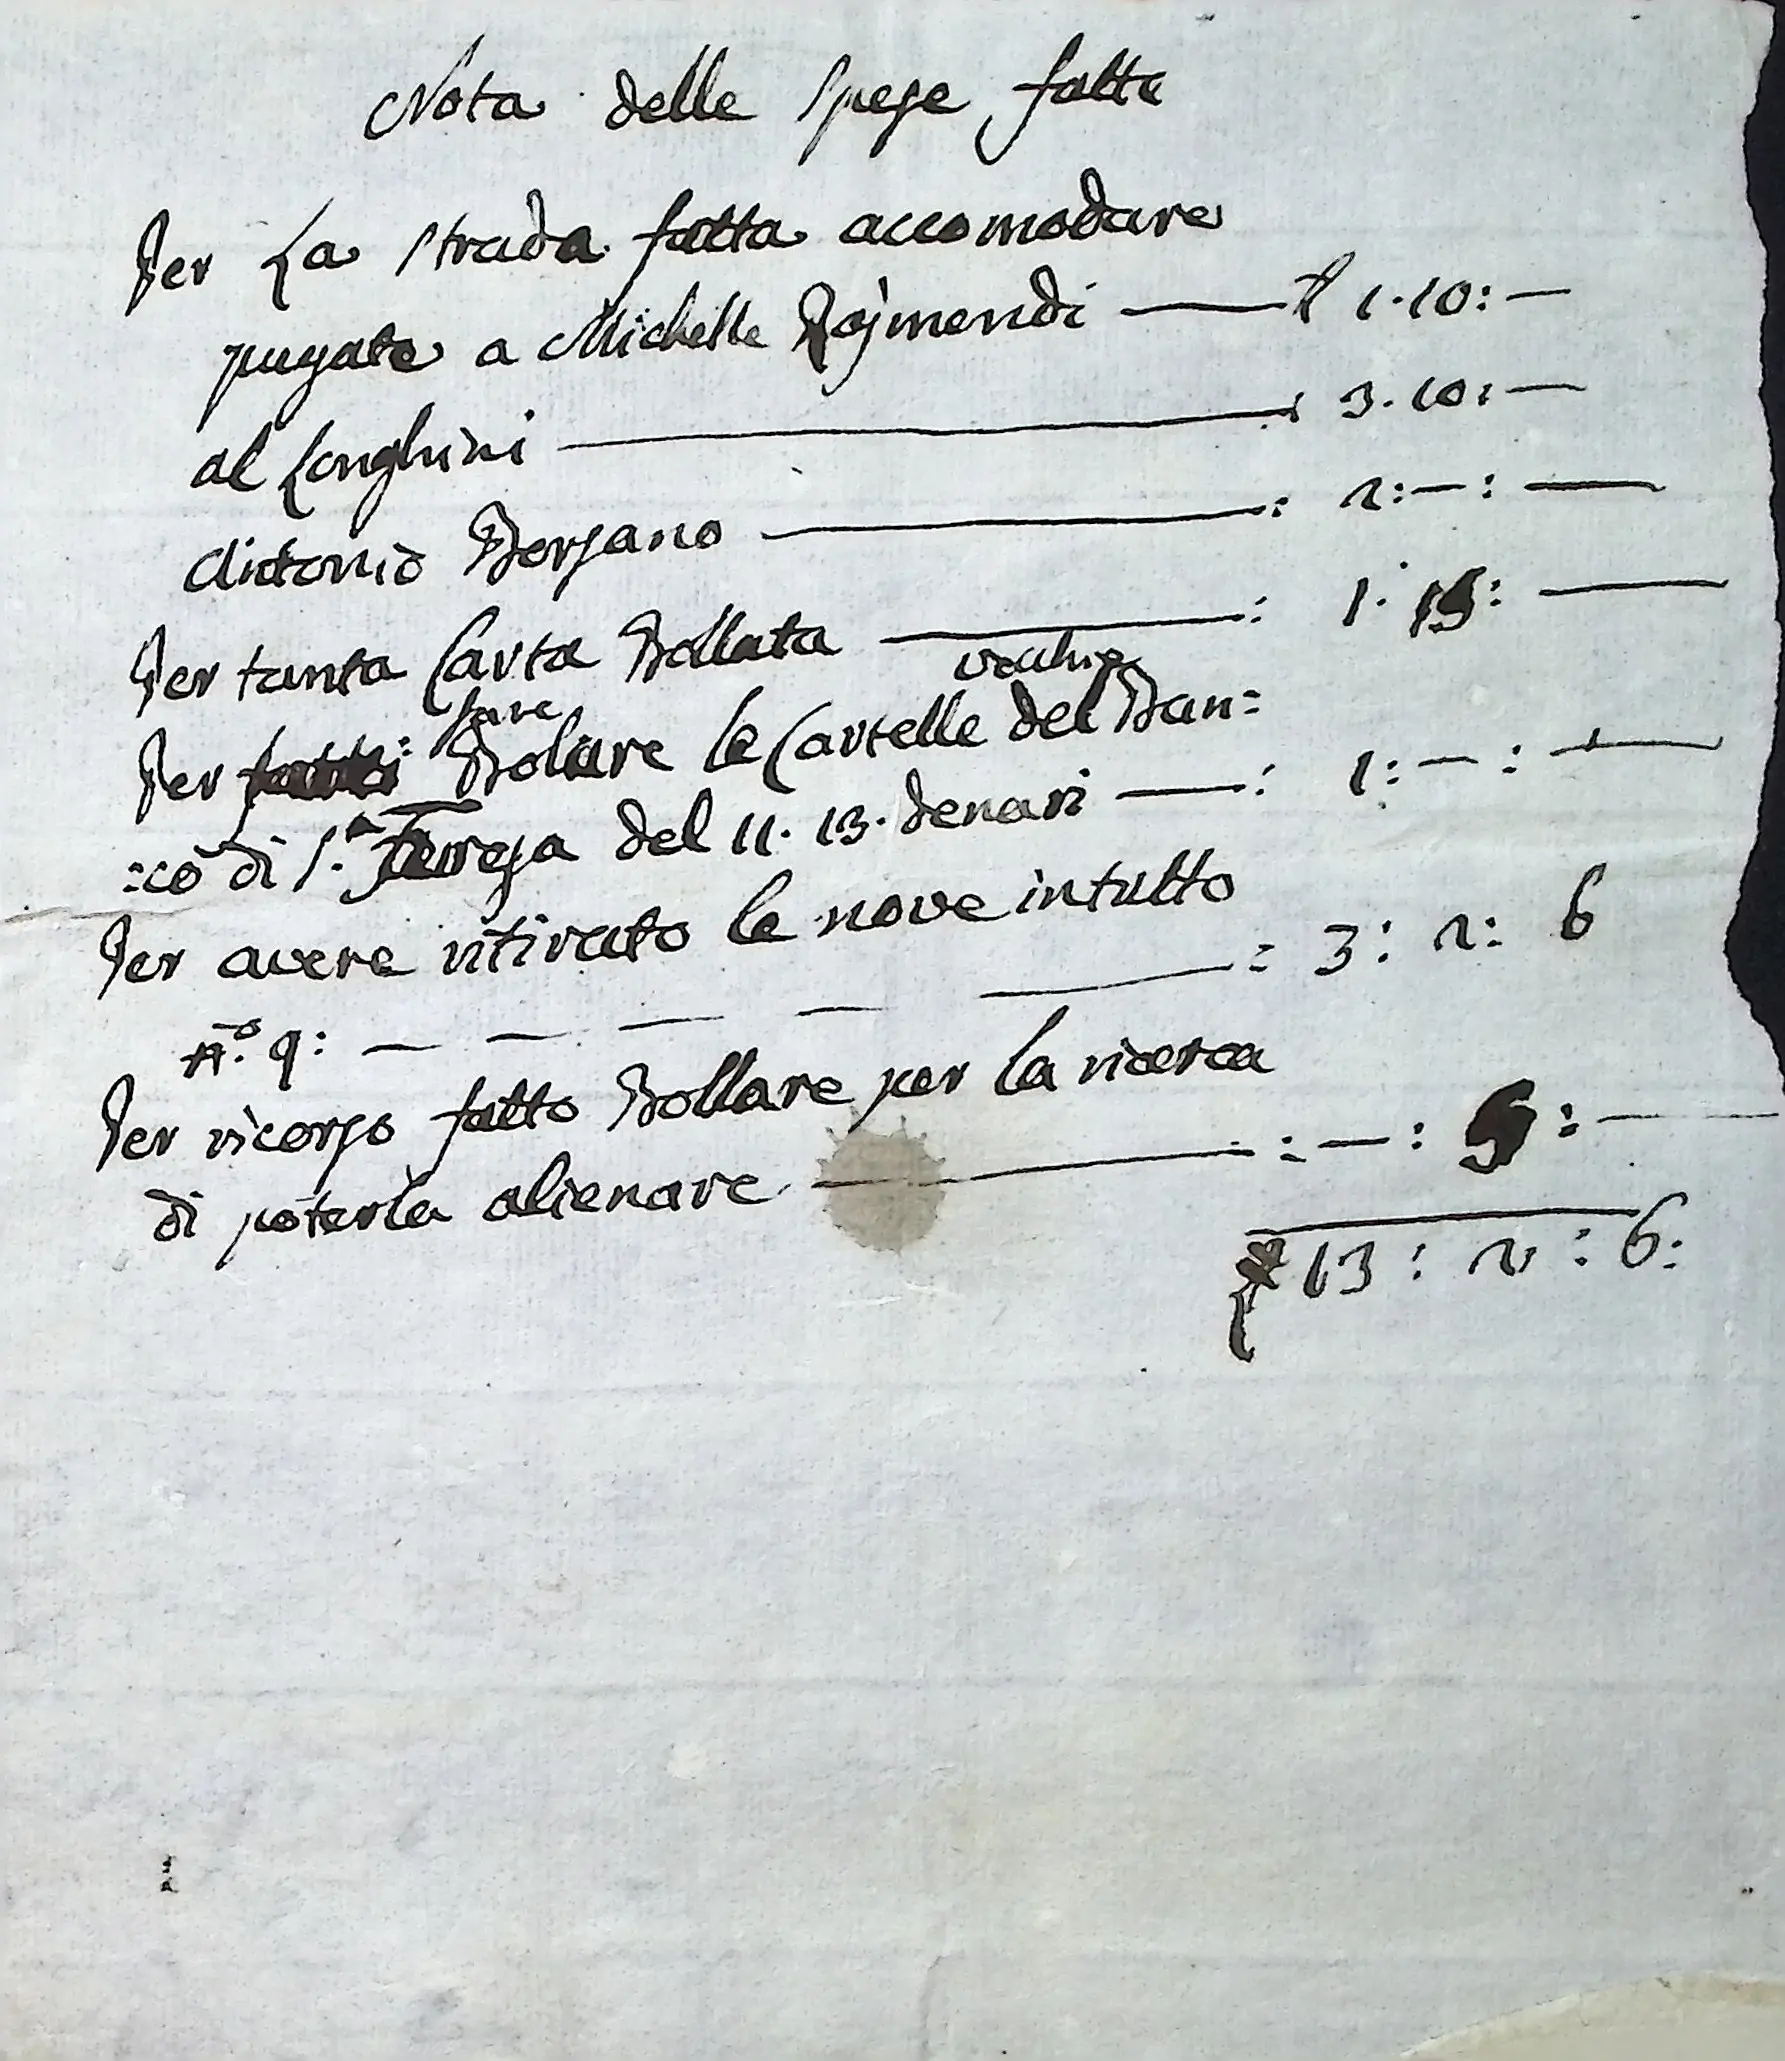 Nota delle spese fatte
Per La strada fatta accomodare
pagate a Michelle Rajmendi — 1.10:—
al Longhini — 3.10:—
Antonio Borsano —: 2:—:—
Per tanta Carta Bollata —: 1.15:—
vechie
fare
Per Bolare le Cartelle del Ban=
=co di S.ta Teresa del 11. 13. denari —: 1:—:—
Per avere ritirato le nove in tutto
N.o 9: — — — — —: 3: 2: 6
Per ricorso fatto Bollare per la ricerca
di poterla alienare —:—: 5:—
13: 2: 6: